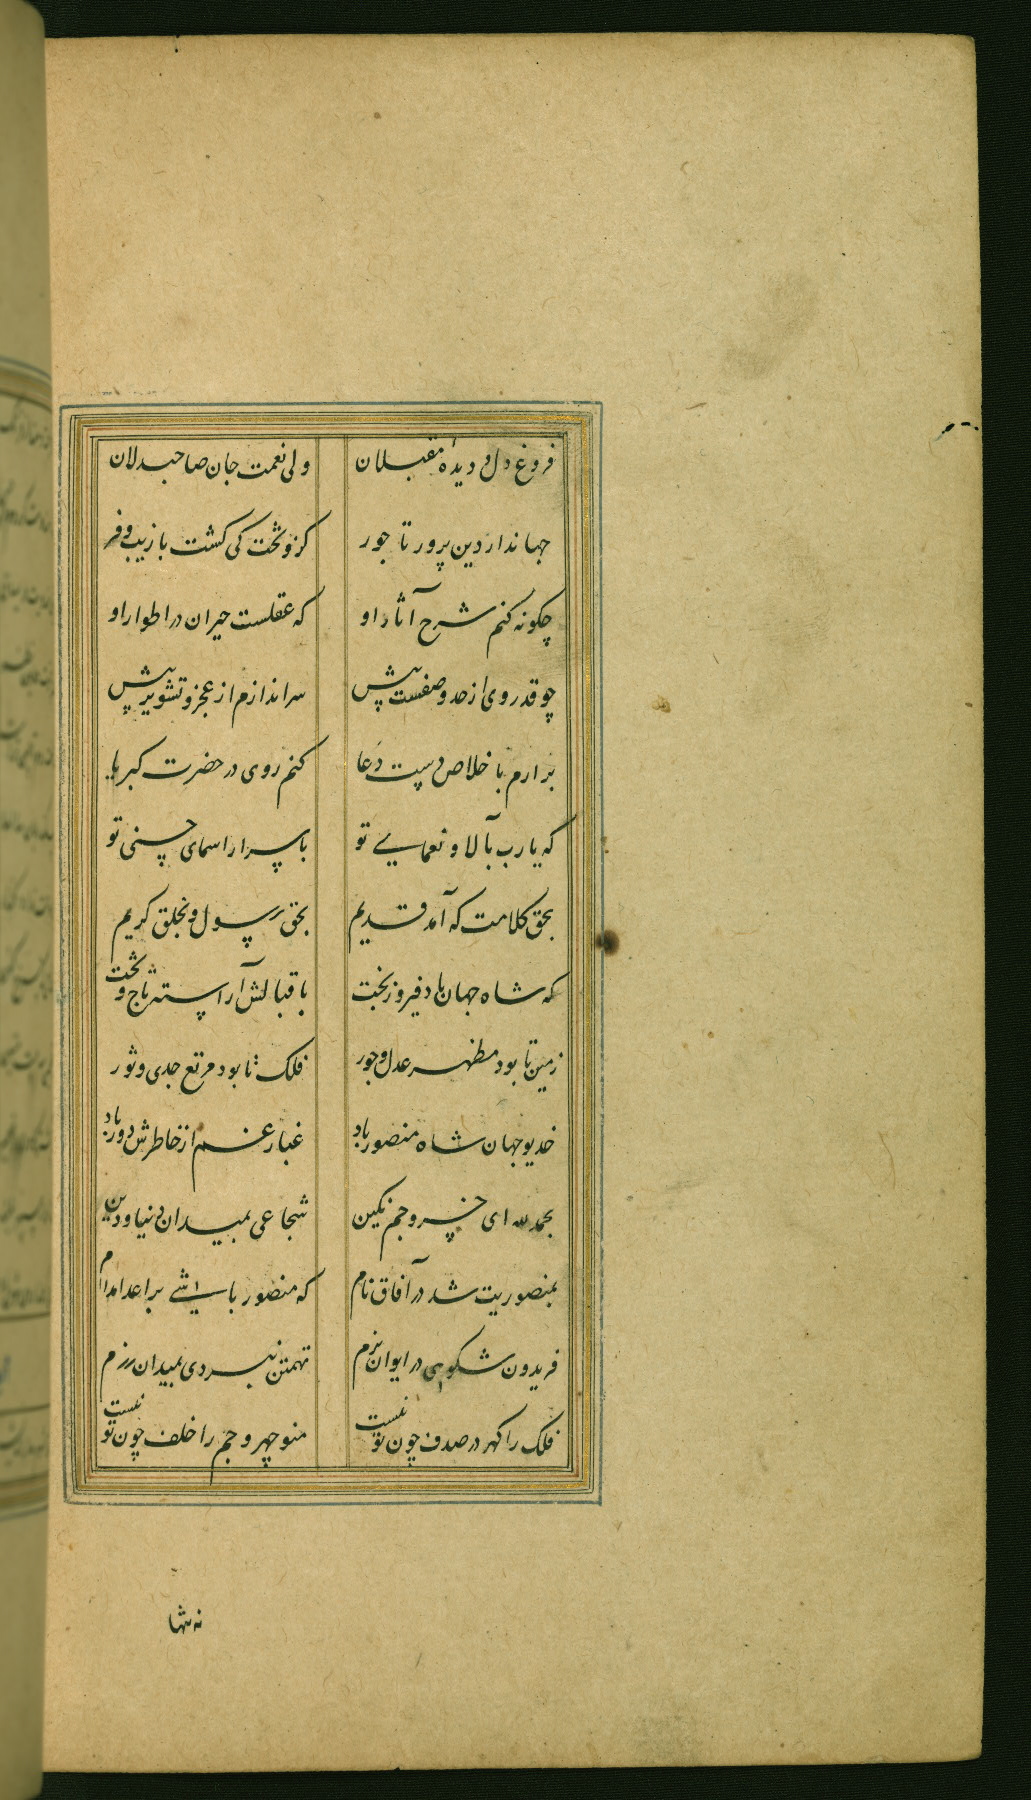 فروغ دل و دیدهٔ مقبلان ولی نعمت جان صاحبدلان
جهاندار دین پرور تاجور کزو تخت کی کشت با زیب و فر
چکونه کنم شرح آثار او که عقلست حیران در اطوار او
چو قدر وی از حد وصفست پیش سراندازم از عجز و تشویر پیش
برارم باخلاص دست دعا کنم روی در حضرت کبریا
که یا رب بآلا و نعمای تو باسرار اسمای حسنی تو
بحق کلامت که آمد قدیم بحق رسول و بخلق کریم
که شاه جهان باد فیروز بخت باقبالش آراسته تاج و تخت
زمین تا بود مظهر عدل و جور فلک تا بود مرتع جدی و ثور
خدیو جهان شاه منصور باد غبار غم از خاطرش دور باد
بحمد لله ای خسرو جم نکین شجاعی بمیدان دنیا و دین
بمنصوریت شد در آفاق نام که منصور باشی بر اعدا مدام
فریدون شکوهی در ایوان بزم تهمتن نبردی بمیدان رزم
فلک را کهر در صدف چون تو نیست منوچهر و جم را خلف چون تو نیست
نه تنها